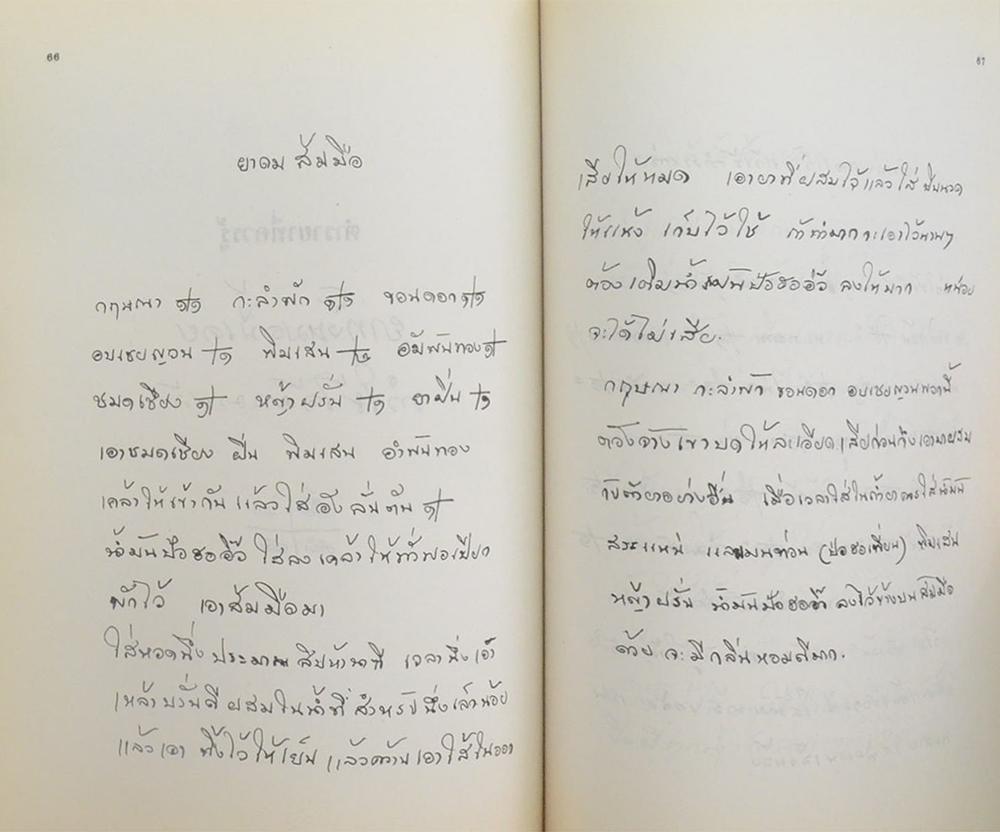 66
ยาดม ส้มมือ
กฤษณา กะลำพัก ขอนดอก
อบเชยญวน พิมเสน อำพันทอง
ชมดเชียง หญ้าฝรั่น ยาฝิ่น
เอาชมดเชียง ฝิ่น พิมเสน อำพันทอง
เคล้าให้เข้ากัน แล้วใส่
น้ำมัน ใส่ลงเคล้าให้ทั่วพอเปียก
พักไว้ เอาส้มมือมา
ใส่หวดนึ่ง ประมาณ สิบห้านาที เวลานึ่งเอา
เหล้าบรั่นดี ผสมในน้ำที่ สำหรับนึ่งเล็กน้อย
แล้วเอา ทิ้งไว้ให้เย็น แล้วคว้านเอาไส้ในออก
67
เสียให้หมด เอายาที่ผสมไว้แล้วใส่
ให้แห้ง เก็บไว้ใช้ ถ้าทำมากจะเอาไว้นานๆ
ต้องเติมน้ำ ลงให้มาก หน่อย
จะได้ไม่เสีย.
กฤษณา กะลำพัก ขอนดอก อบเชยญวนพวกนี้
ต้องจ้างเขาบดให้ละเอียด เสียก่อนถึงเอามาผสม
กับตัวยาอย่างอื่น เมื่อเวลาใส่ในถ้ำยาควรใส่น้ำมัน
สระแหน่ และเมนท่อน พิมเสน
หญ้าฝรั่น น้ำมัน ลงไว้ข้างบนส้มมือ
ด้วย จะมีกลิ่นหอมดีมาก.